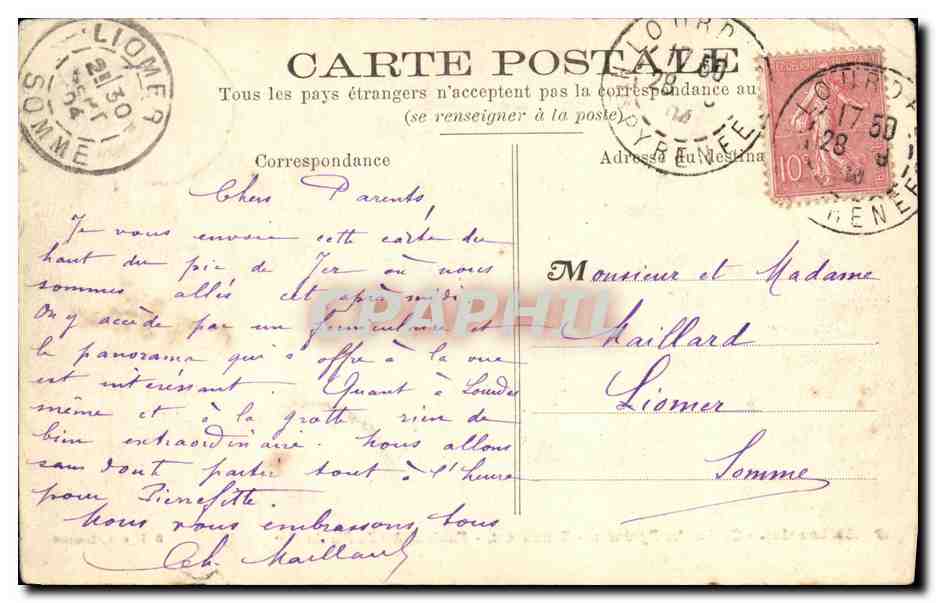 CARTE POSTALE
Tous les pays étrangers n'acceptent pas la correspondance au
(se renseigner à la poste)
Correspondance
Adresse du destina
LIOMER
30
04
SOMME
LOURD
17 50
28
PYRENEE
LOURD
17 50
28
10
Chers Parents,
Je vous envoie cette carte du
haut du pic de Jer où nous
sommes allés cet après midi
On y accède par un funiculaire et
le panorama qui s'offre à la vue
est intéressant. Quant à Lourdes
même et à la grotte rien de
bien extraordinaire. Nous allons
sans dout partir tout à l'heure
pour Pierrefitte.
Nous vous embrassons tous
Ch. Maillard
Monsieur et Madame
Maillard
Liomer
Somme
CPAPHIL